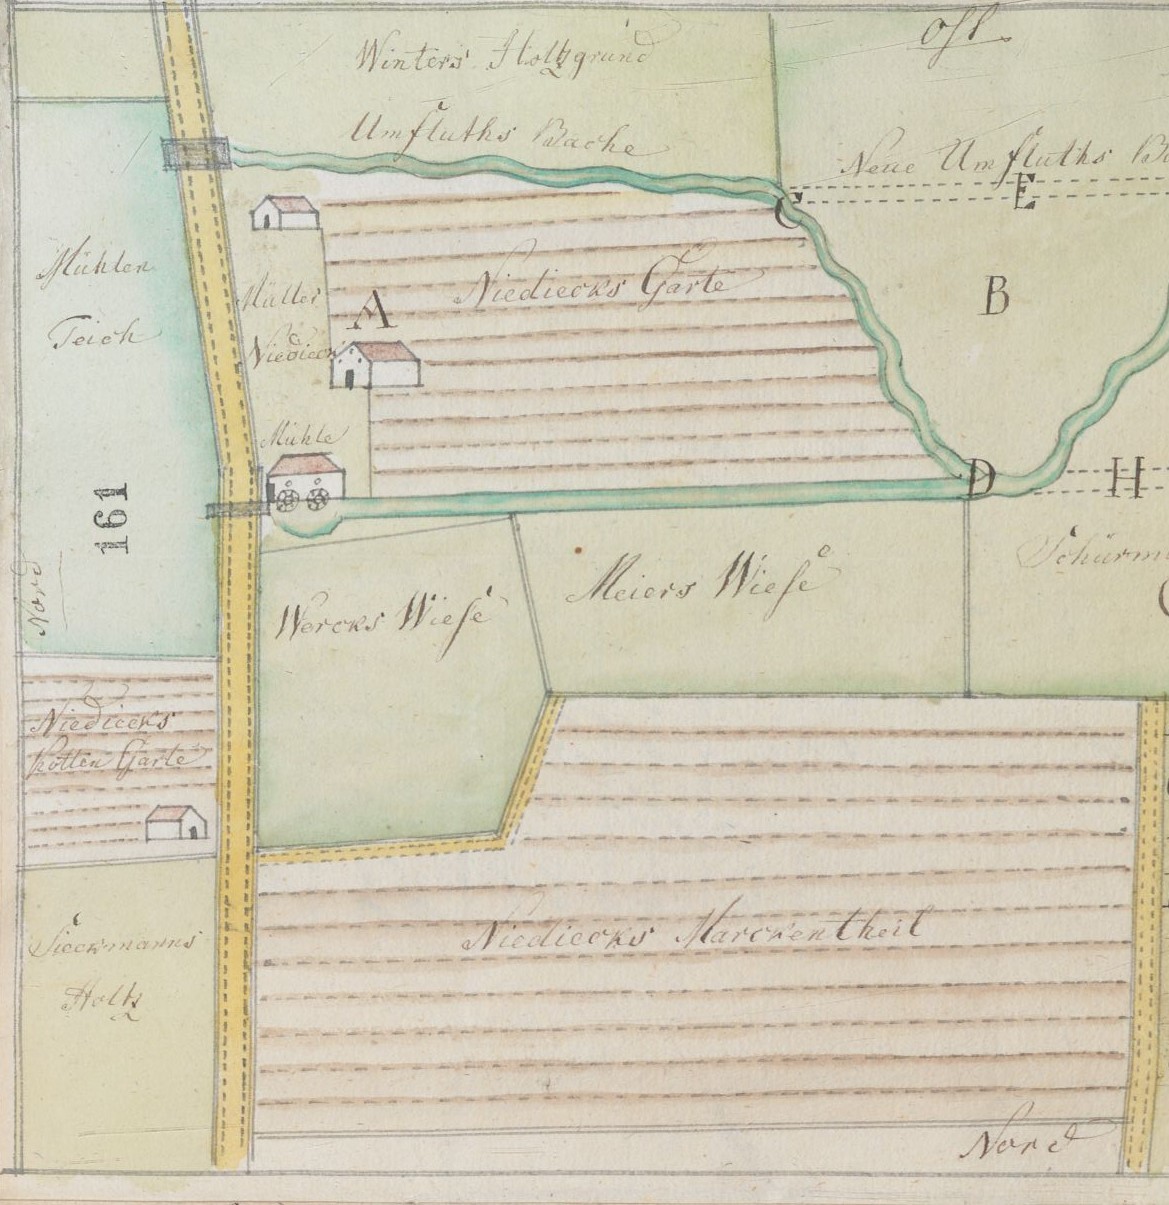 Ost.
Winters Holtzgrund
Umfluths Bache
Neue Umfluths B
C
E
Mühlen
Teich
Müller
Niedieck
A
Niediecks Garte
B
Mühle
D
H
161
Nord
Wercks Wiese
Meiers Wiese
Schürm
Niediecks
Kotten Garte
Sieckmanns
Holtz
Niediecks Marckentheil
Nord